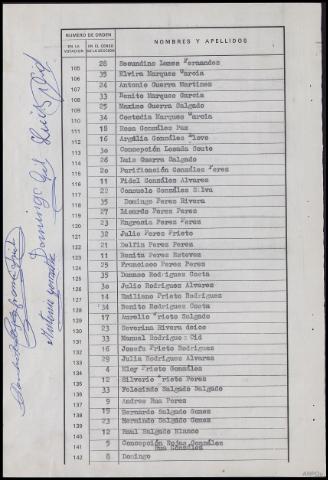 NUMERO DE ORDEN
EN LA VOTACION
EN EL CENSO DE LA SECCION
NOMBRES Y APELLIDOS
105 28 Secundino Lamas Fernandez
35 Elvira Marquez Garcia
24 Antonio Guerra Martinez
33 Benito Marquez Garcia
25 Maximo Guerra Salgado
34 Custodia Marques Garcia
111 18 Rosa González Paz
112 16 Argália González
113 30 Concepción Losada Couto
114 26 Luis Guerra Salgado
115 20 Purificación González Perez
116 11 Fidel González Alvarez
117 22 Consuelo González Silva
118 35 Domingo Perez Rivera
119 27 Ricardo Perez Perez
120 23 Engracia Perez Perez
121 32 Julio Perez Prieto
122 21 Delfin Perez Perez
123 11 Benita Perez Estevez
124 29 Francisco Perez Perez
125 35 Damaso Rodriguez Costa
126 30 Julio Rodriguez Alvarez
127 14 Emiliano Prieto Rodriguez
128 34 Benito Rodriguez Costa
129 17 Aurelio Prieto Salgado
130 23 Severina Rivera
131 33 Manuel Rodriguez Cid
132 16 Josefa Prieto Rodriguez
133 29 Julia Rodriguez Alvarez
134 4 Eloy Prieto González
135 12 Silverio Prieto Perez
136 33 Salgado Rodriguez
137 9 Andres Rua Perez
138 19 Bernardo Salgado Gomez
139 23 Salgado Gomez
140 12 Raul Salgado Blanco
141 5 Concepción Rojas González
Rua González
142 8 Domingo